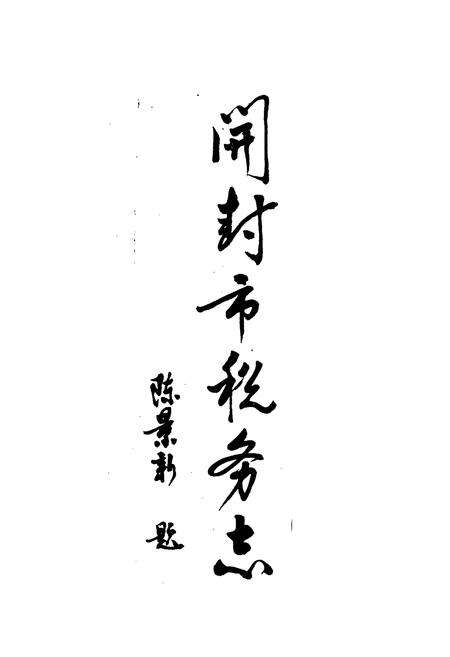 開封市税务志
陈景新 题